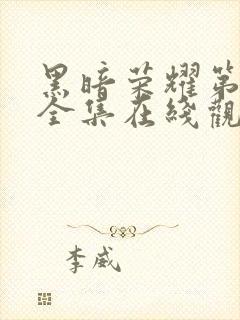 黑暗荣耀第
全集在綫觀
李威